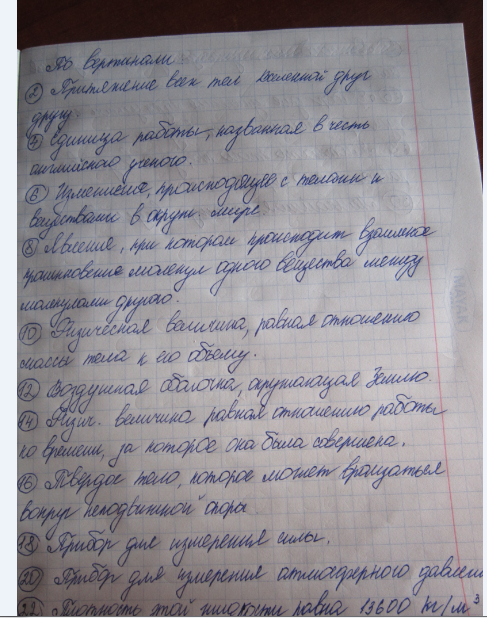 По вертикали
② Притяжение всех тел Вселенной друг
другу.
⑤ Единица работы, названная в честь
английского ученого.
⑥ Изменения, происходящие с телами и
веществами в окруж. мире
⑧ Явление, при котором происходит взаимное
проникновение молекул одного вещества между
молекулами другого.
⑩ Физическая величина, равная отношению
массы тела к его объему.
⑫ Воздушная оболочка, окружающая Землю
⑭ Физич. величина равная отношению работы
ко времени, за которое она была совершена.
⑯ Твердое тело, которое может вращаться
вокруг неподвижной опоры
⑱ Прибор для измерения силы.
⑳ Прибор для измерения атмосферного давлени
22 Плотность этой жидкости равна 13600 кг/м³